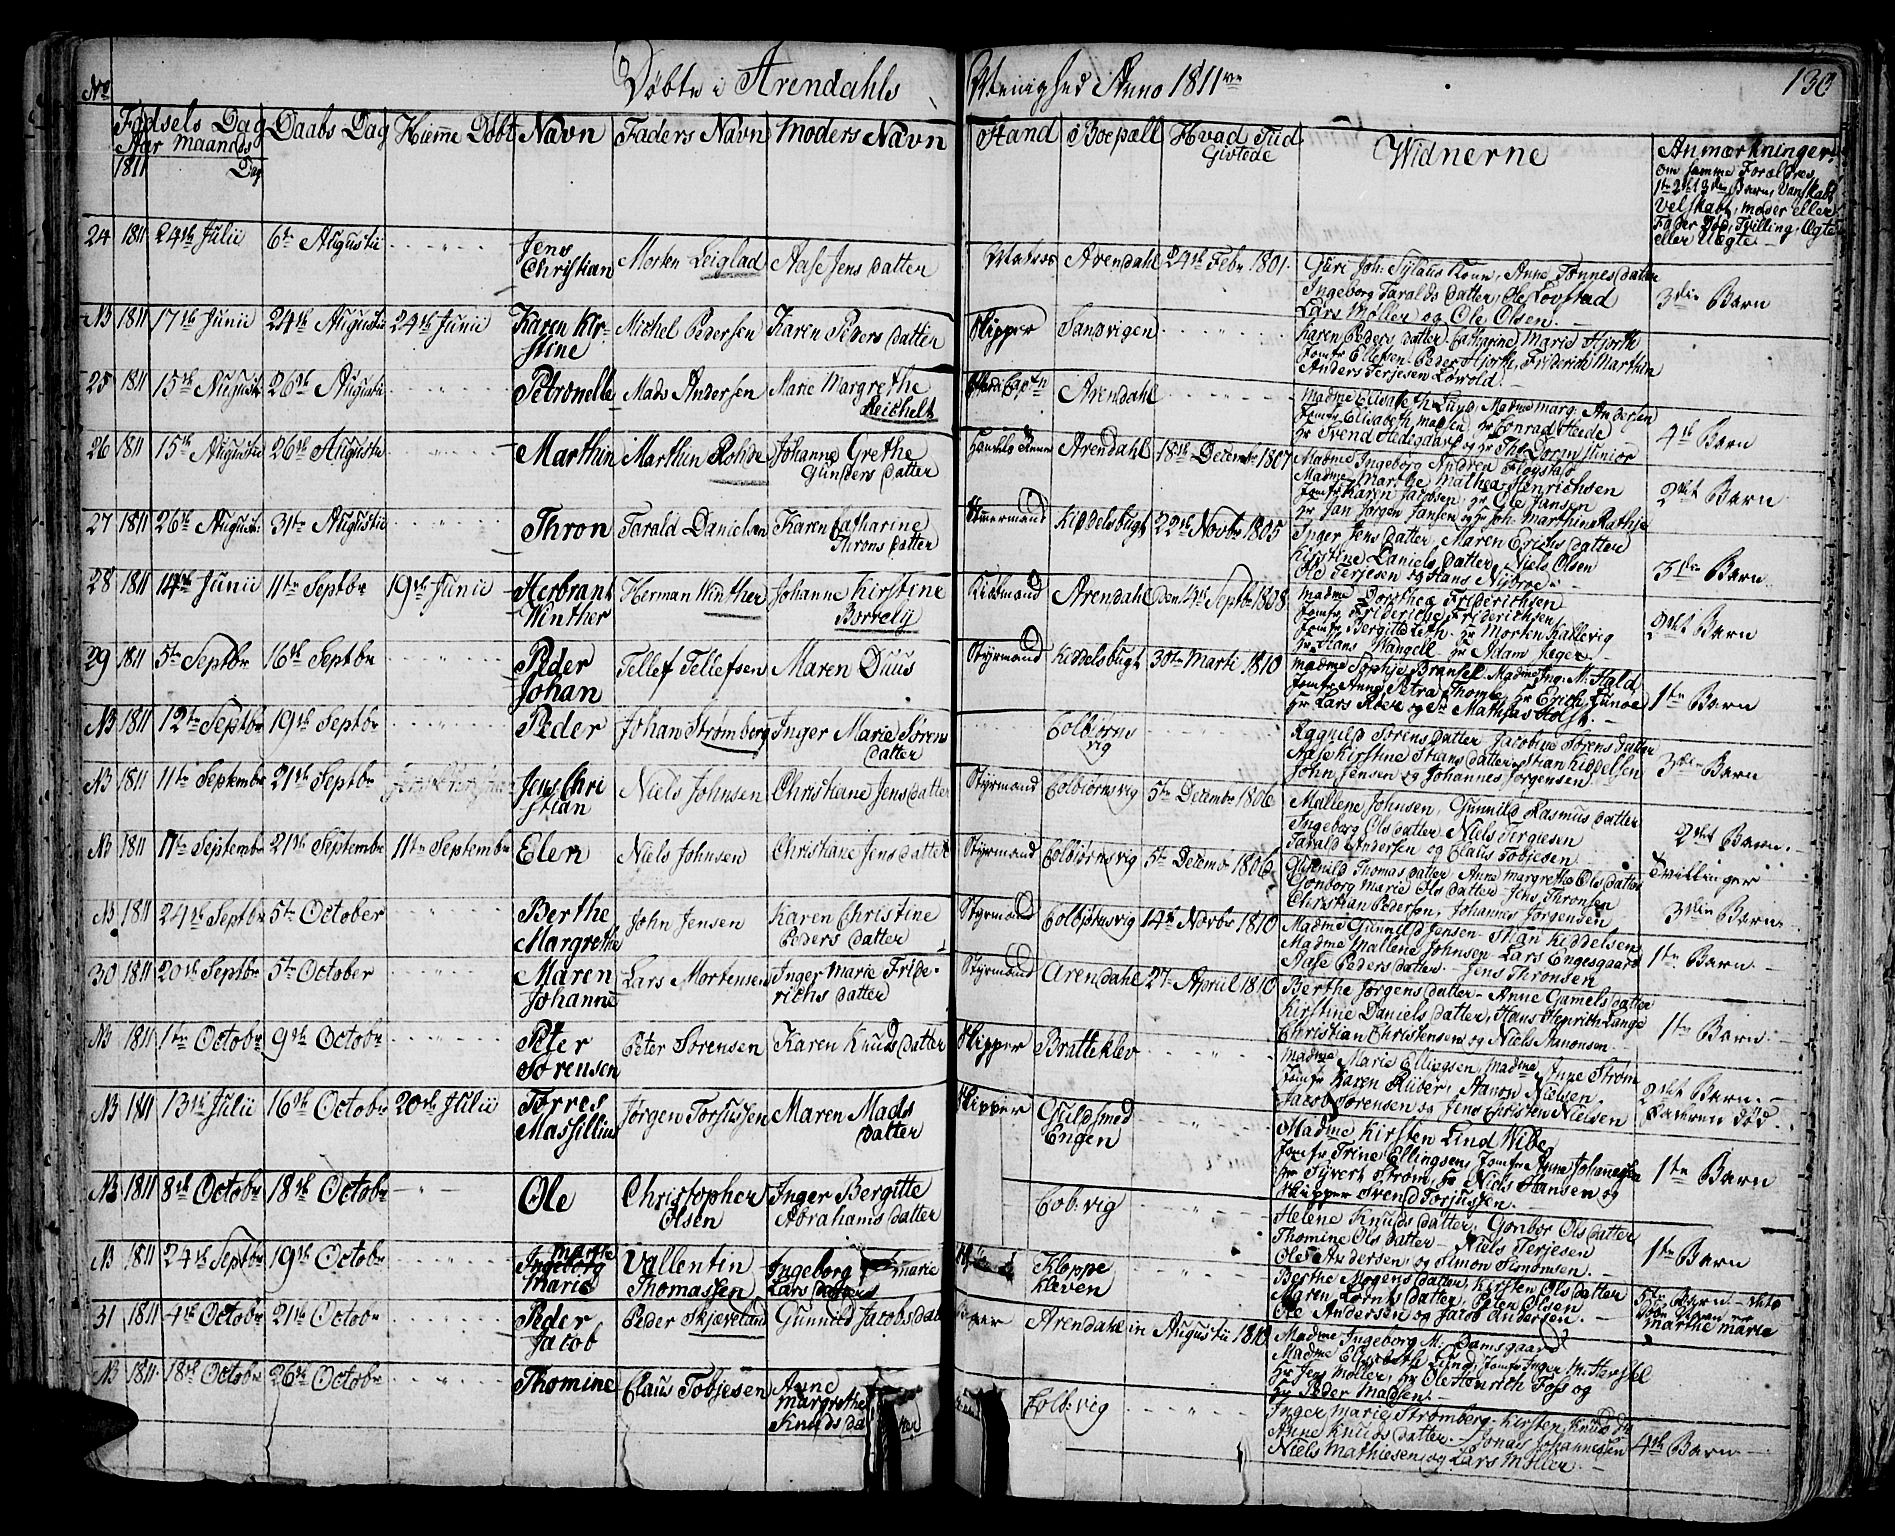 Døbte i Arendahls Menighed Anno 1811
130
No
Fødsels Dag
Aar maaneds Dag
1811
Daabs Dag
Hieme Døbt
Navn
Faders Navn
Moders Navn
Stand
Boepæll
Hvad Tiid
Givtede
Widnerne
Anmærkninger
om samme Forældres
1te 2det 3die Barn, Vanskabt
Velskabt, moder eller
Fader Død, Tvilling, Ægte
eller Uægte
24 1811 24de Julii 6te Augustii Jens Christian Morten Leiglad Aase Jens datter Matros Arendahl 24de Febr 1801
Guri Joh: Sylaus Kone, Anne Tønnes datter
Ingeborg Taralds datter, Ole Løvstad
Lars Møller og Ole Olsen
3die Barn
NB 1811 17de Junii 24de Augustii 24de Junii Karen Kirstine Michel Pedersen Karen Peders datter Skipper Sandvigen
Karen Peders datter, Catharine Marie Hjorth
Jomfr Ellefsen, Peder Hjorth, Friderich Marthin
Anders Terjesen Løvold
25 1811 15de Augustii 26de Augustii Petronelle Mads Andersen Marie Margrethe Reichelt Arendahl
Madme Elisabeth Lund, Madme Marg: Andersen
Jomfr Elisabeth Madsen, hr Conrad Heide
hr Svend Hedegaard og hr Tho: Doran Junior
4de Barn
26 1811 15de Augustii 26de Augustii Marthin Marthin Rohde Johanne Grethe Gunders datter Arendahl 18de Decembr 1807
Madme Ingeborg Andrea Fløystad
Madme Marthe Mathea Henrichsen
Jomfr Karen Jacobsen, hr Ole Jansen
hr Jan Jørgen Jansen og hr Joh: Marthin Rathje
2det Barn
27 1811 26de August 31te Augustii Thron Tarald Danielsen Karen Catharine Throns datter Kiddelsbugt 22de Novbr 1805
Inger Jens datter, Maren Erichs datter
Kirstine Daniels datter, Niels Olsen
Ole Terjesen og Hans Nybroe
3die Barn
28 1811 14de Junii 11te Septbr 19de Junii Herbrant Winther Herman Winther Johanne Kirstine Borrely Kiøbmand Arendahl den 14de Septbr 1808
Madme Dorothea Friderichsen
Jomfr Frideriche Friderichsen
Jomfr Bergitte Leth, hr Morten Kallevig
hr Hans Wangell hr Adam Jeger
2det Barn
29 1811 5te Septbr 16de Septbr Peder Johan Tellef Tellefsen Maren Duus Styrmand Kiddelsbugt 30te Marti 1810
Madme Sophie Bransell, Madme Ing: M: Hald
Jomfr Anne Petra Thomle, hr Erich Tunoe
hr Lars Roer og hr Mathias Holst
1te Barn
NB 1811 12te Septbr 19de Septbr Peder Johan Strømberg Inger Marie Sørens datter Colbiørnsvig
Ragnild Sørens datter Jacobine Sørens datter
Aase Kirstine Stians datter, Stian Kiddelsen
John Jensen og Johannes Jørgensen
3die Barn
NB 1811 11te Septembr 21de Septbr Jens Christian Niels Johnsen Christiane Jens datter Styrmand Colbiørnsvig 5te Decembr 1806
Mallene Johnsen, Gunnild Rasmus datter
Ingeborg Ols datter, Niels Tergiesen
Tarald Andersen og Claus Tobjesen
2det Barn
Tvillinger
NB 1811 11te Septembr 21de Septembr 11te Septembr Elen Niels Johnsen Christiane Jens datter Styrmand Colbiørnsvig 5te Decembr 1806
Gunnild Thomas datter, Anne Margrethe Ols datter
Gonborg Marie Ols datter, Jens Thronsen
Christian Pedersen, Johannes Jørgensen
3die Barn
NB 1811 24de Septbr 5te October Berthe Margrethe John Jensen Karen Christine Peders datter Styrmand Colbiørnsvig 14de Novbr 1810
Madme Gunnild Jensen, Stian Kiddelsen
Madme Mallene Johnsen, Lars Engesgaard
Aase Peders datter, Jens Thronsen
1te Barn
30 1811 20de Septbr 5te October Maren Johanne Lars Mortensen Inger Marie Friderichs datter Styrmand Arendahl 27de April 1810
Berthe Jørgens datter, Anne Gamels datter
Kirstine Daniels datter, Hans Henrich Lange
Christian Christensen og Niels Manonsen
1te Barn
NB 1811 1te Octobr 9de Octobr Peter Sørensen Peter Sørensen Karen Knuds datter Skipper Bratteklev
Madme Marie Ellingsen, Madme Anne Strøm
Jomfr Karen Ruber, Aanon Nielsen
Jacob Sørensen og Jens Christen Nielsen
2det Barn
Faderen Død
NB 1811 13de Julii 16de Octobr 20de Julii Torres Massillius Jørgen Torjussen Maren Mads datter Skipper Guldsmed Engen
Madme Kirsten Lind Wibe
Jomfr Trine Ellingsen, Jomfru Anne Johannesen
hr Syvert Strøm, hr Niels Hansen og
Skipper Svend Torjussen
1te Barn
NB 1811 8de Octobr 18de Octobr Ole Christopher Olsen Inger Bergitte Abrahams datter Colb:vig
Helene Knuds datter, Gonbor Ols datter
Thomine Ols datter, Niels Terjesen
Ole Andersen og Simon Simonsen
1te Barn
NB 1811 24de Septbr 19de Octobr Marthe Marie Vallentin Thomassen Ingeborg Marie Lars datter Kloppe kleven
Berthe Mogens datter, Kirsten Ols datter
Maren Lorents datter, Peter Olsen
Ole Andersen og Jacob Andersen
5te Barn
Marthe Marie
31 1811 4de Octobr 21de Octobr Peder Jacob Peder Skjæveland Gunnild Jacobs dat Arendahl in Augustii 1810
Madme Ingeborg M: Damsgaard
Madme Elisabeth Lund, Jomfr Inger M: Herstel
hr Jens Møller, hr Ole Henrich Foss og
hr Peder Madsen
NB 1811 18de Octobr 26de Octobr Thomine Claus Tobjesen Anne Margrethe Knuds da Colb:vig
Inger Marie Strømberg, Kirsten Knuds dr
Anne Knuds datter, Jonas Johannesen
Niels Mathiesen og Lars Møller
4de Barn